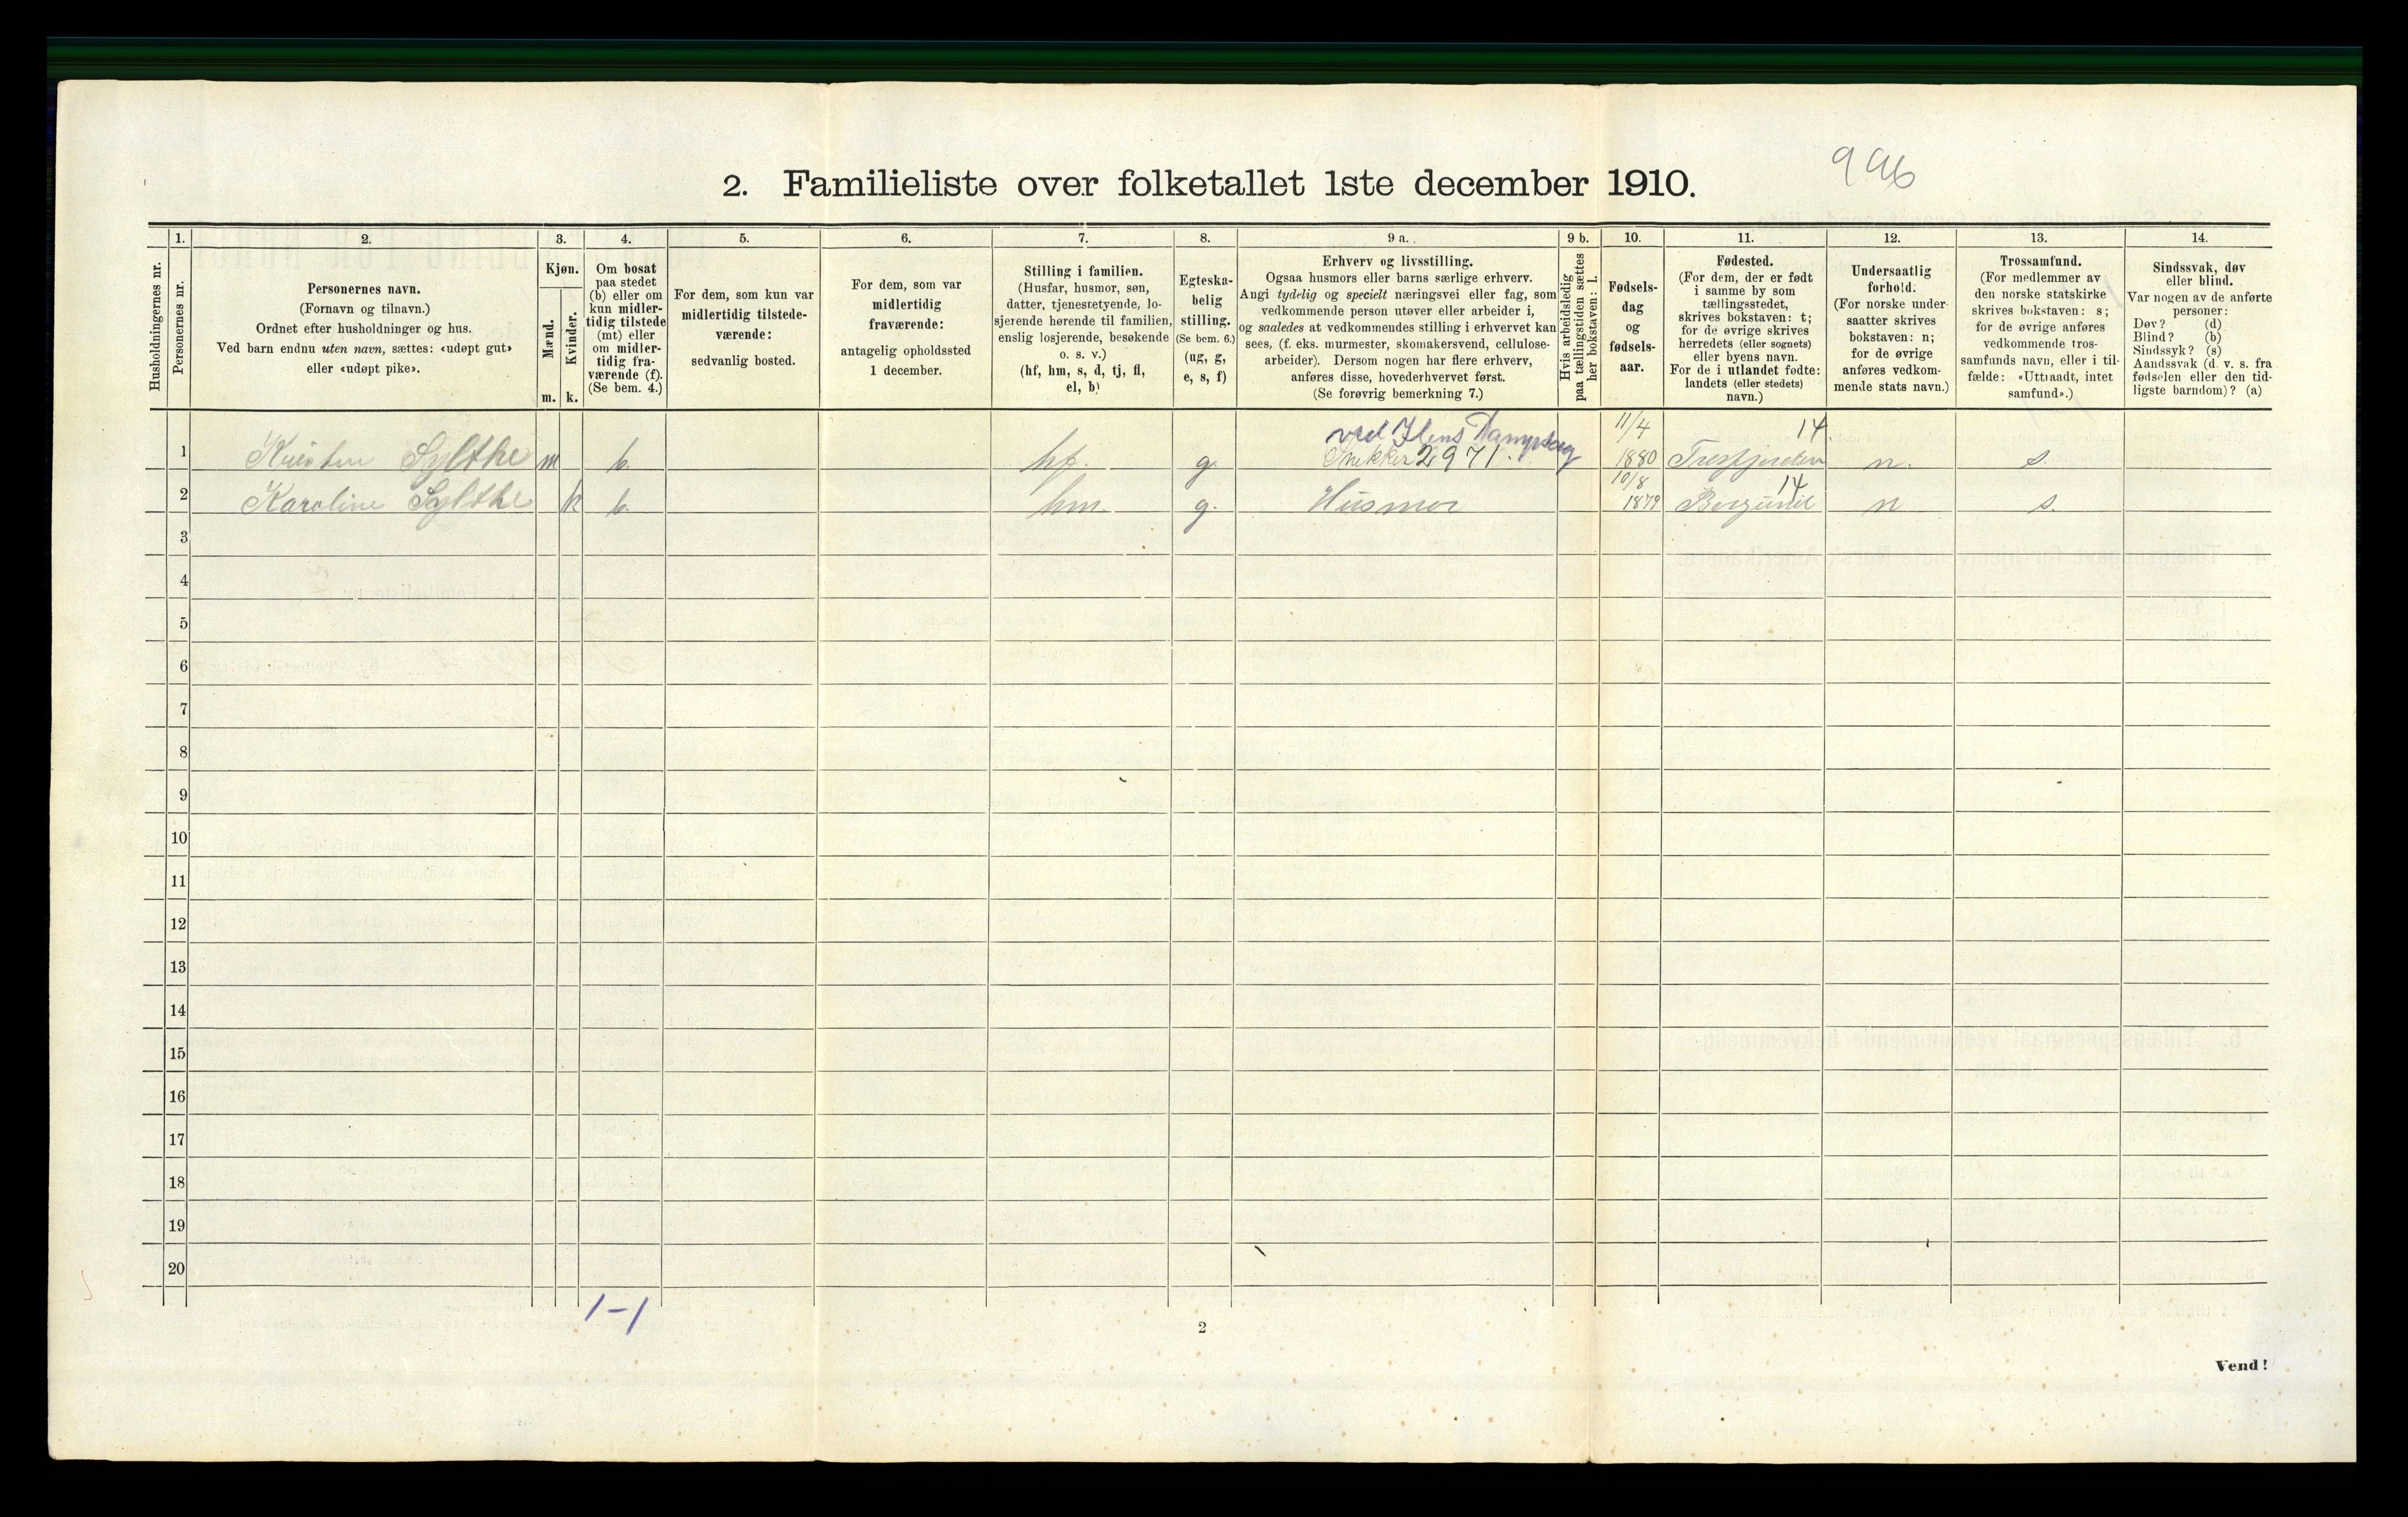 996
2. Familieliste over folketallet 1ste december 1910.
Husholdningernes nr.
1. Personernes nr.
2. Personernes navn.
(Fornavn og tilnavn.)
Ordnet efter husholdninger og hus.
Ved barn endnu uten navn, sættes: «udøpt gut»
eller «udøpt pike».
3. Kjøn.
Mænd. m.
Kvinder. k.
4. Om bosat
paa stedet
(b) eller om
kun midler-
tidig tilstede
(mt) eller
om midler-
tidig fra-
værende (f).
(Se bem. 4.)
5. For dem, som kun var
midlertidig tilstede-
værende:
sedvanlig bosted.
6. For dem, som var
midlertidig
fraværende:
antagelig opholdssted
1 december.
7. Stilling i familien.
(Husfar, husmor, søn,
datter, tjenestetyende, lo-
sjerende hørende til familien,
enslig losjerende, besøkende
o. s. v.)
(hf, hm, s, d, tj, fl,
el, b)
8. Egteska-
belig
stilling.
(Se bem. 6.)
(ug, g,
e, s, f)
9 a. Erhverv og livsstilling.
Ogsaa husmors eller barns særlige erhverv.
Angi tydelig og specielt næringsvei eller fag, som
vedkommende person utøver eller arbeider i,
og saaledes at vedkommendes stilling i erhvervet kan
sees, (f. eks. murmester, skomakersvend, cellulose-
arbeider). Dersom nogen har flere erhverv,
anføres disse, hovederhvervet først.
(Se forøvrig bemerkning 7.)
9 b. Hvis arbeidsledig
paa tællingstiden sættes
her bokstaven: l.
10. Fødsels-
dag
og
fødsels-
aar.
11. Fødested.
(For dem, der er født
i samme by som
tællingsstedet,
skrives bokstaven: t;
for de øvrige skrives
herredets (eller sognets)
eller byens navn.
For de i utlandet fødte:
landets (eller stedets)
navn.)
12. Undersaatlig
forhold.
(For norske under-
saatter skrives
bokstaven: n;
for de øvrige
anføres vedkom-
mende stats navn.)
13. Trossamfund.
(For medlemmer av
den norske statskirke
skrives bokstaven: s;
for de øvrige anføres
vedkommende tros-
samfunds navn, eller i til-
fælde: «Uttraadt, intet
samfund».)
14. Sindssvak, døv
eller blind.
Var nogen av de anførte
personer:
Døv? (d)
Blind? (b)
Sindssyk? (s)
Aandssvak (d. v. s. fra
fødselen eller den tid-
ligste barndom)? (a)
ved Ilens Dampsag 11/4 14.
1 Kristen Sylthe m b. hf. g. Snekker 2971. 1880 Tresfjorden n. s.
10/8 14
2 Karoline Sylthe k b. hm. g. Husmor 1879 Borgund n s.
3
4
5
6
7
8
9
10
11
12
13
14
15
16
17
18
19
20
1-1
2
Vend!